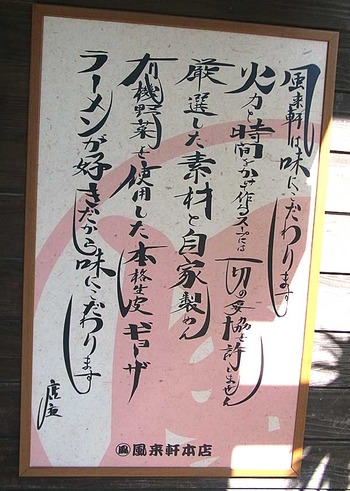 風来軒は味にこだわります
火力と時間をかけ作るスープには一切の妥協を許しません
厳選した素材と自家製めん
有機野菜を使用した本格生皮ギョーザ
ラーメンが好きだから味にこだわります
店主
風来軒本店